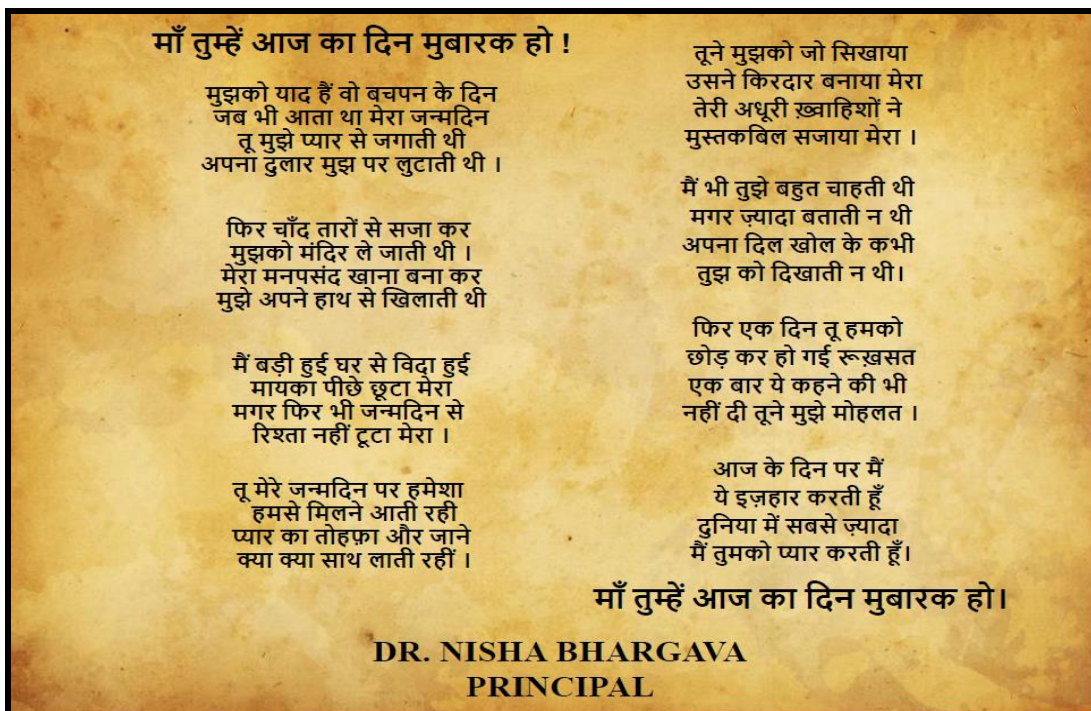 माँ तुम्हें आज का दिन मुबारक हो !
मुझको याद हैं वो बचपन के दिन
जब भी आता था मेरा जन्मदिन
तू मुझे प्यार से जगाती थी
अपना दुलार मुझ पर लुटाती थी ।
फिर चाँद तारों से सजा कर
मुझको मंदिर ले जाती थी ।
मेरा मनपसंद खाना बना कर
मुझे अपने हाथ से खिलाती थी
मैं बड़ी हुई घर से विदा हुई
मायका पीछे छूटा मेरा
मगर फिर भी जन्मदिन से
रिश्ता नहीं टूटा मेरा ।
तू मेरे जन्मदिन पर हमेशा
हमसे मिलने आती रही
प्यार का तोहफ़ा और जाने
क्या क्या साथ लाती रहीं ।
तूने मुझको जो सिखाया
उसने किरदार बनाया मेरा
तेरी अधूरी ख़्वाहिशों ने
मुस्तकबिल सजाया मेरा ।
मैं भी तुझे बहुत चाहती थी
मगर ज़्यादा बताती न थी
अपना दिल खोल के कभी
तुझ को दिखाती न थी।
फिर एक दिन तू हमको
छोड़ कर हो गई रूख़सत
एक बार ये कहने की भी
नहीं दी तूने मुझे मोहलत ।
आज के दिन पर मैं
ये इज़हार करती हूँ
दुनिया में सबसे ज़्यादा
मैं तुमको प्यार करती हूँ।
माँ तुम्हें आज का दिन मुबारक हो।
DR. NISHA BHARGAVA
PRINCIPAL